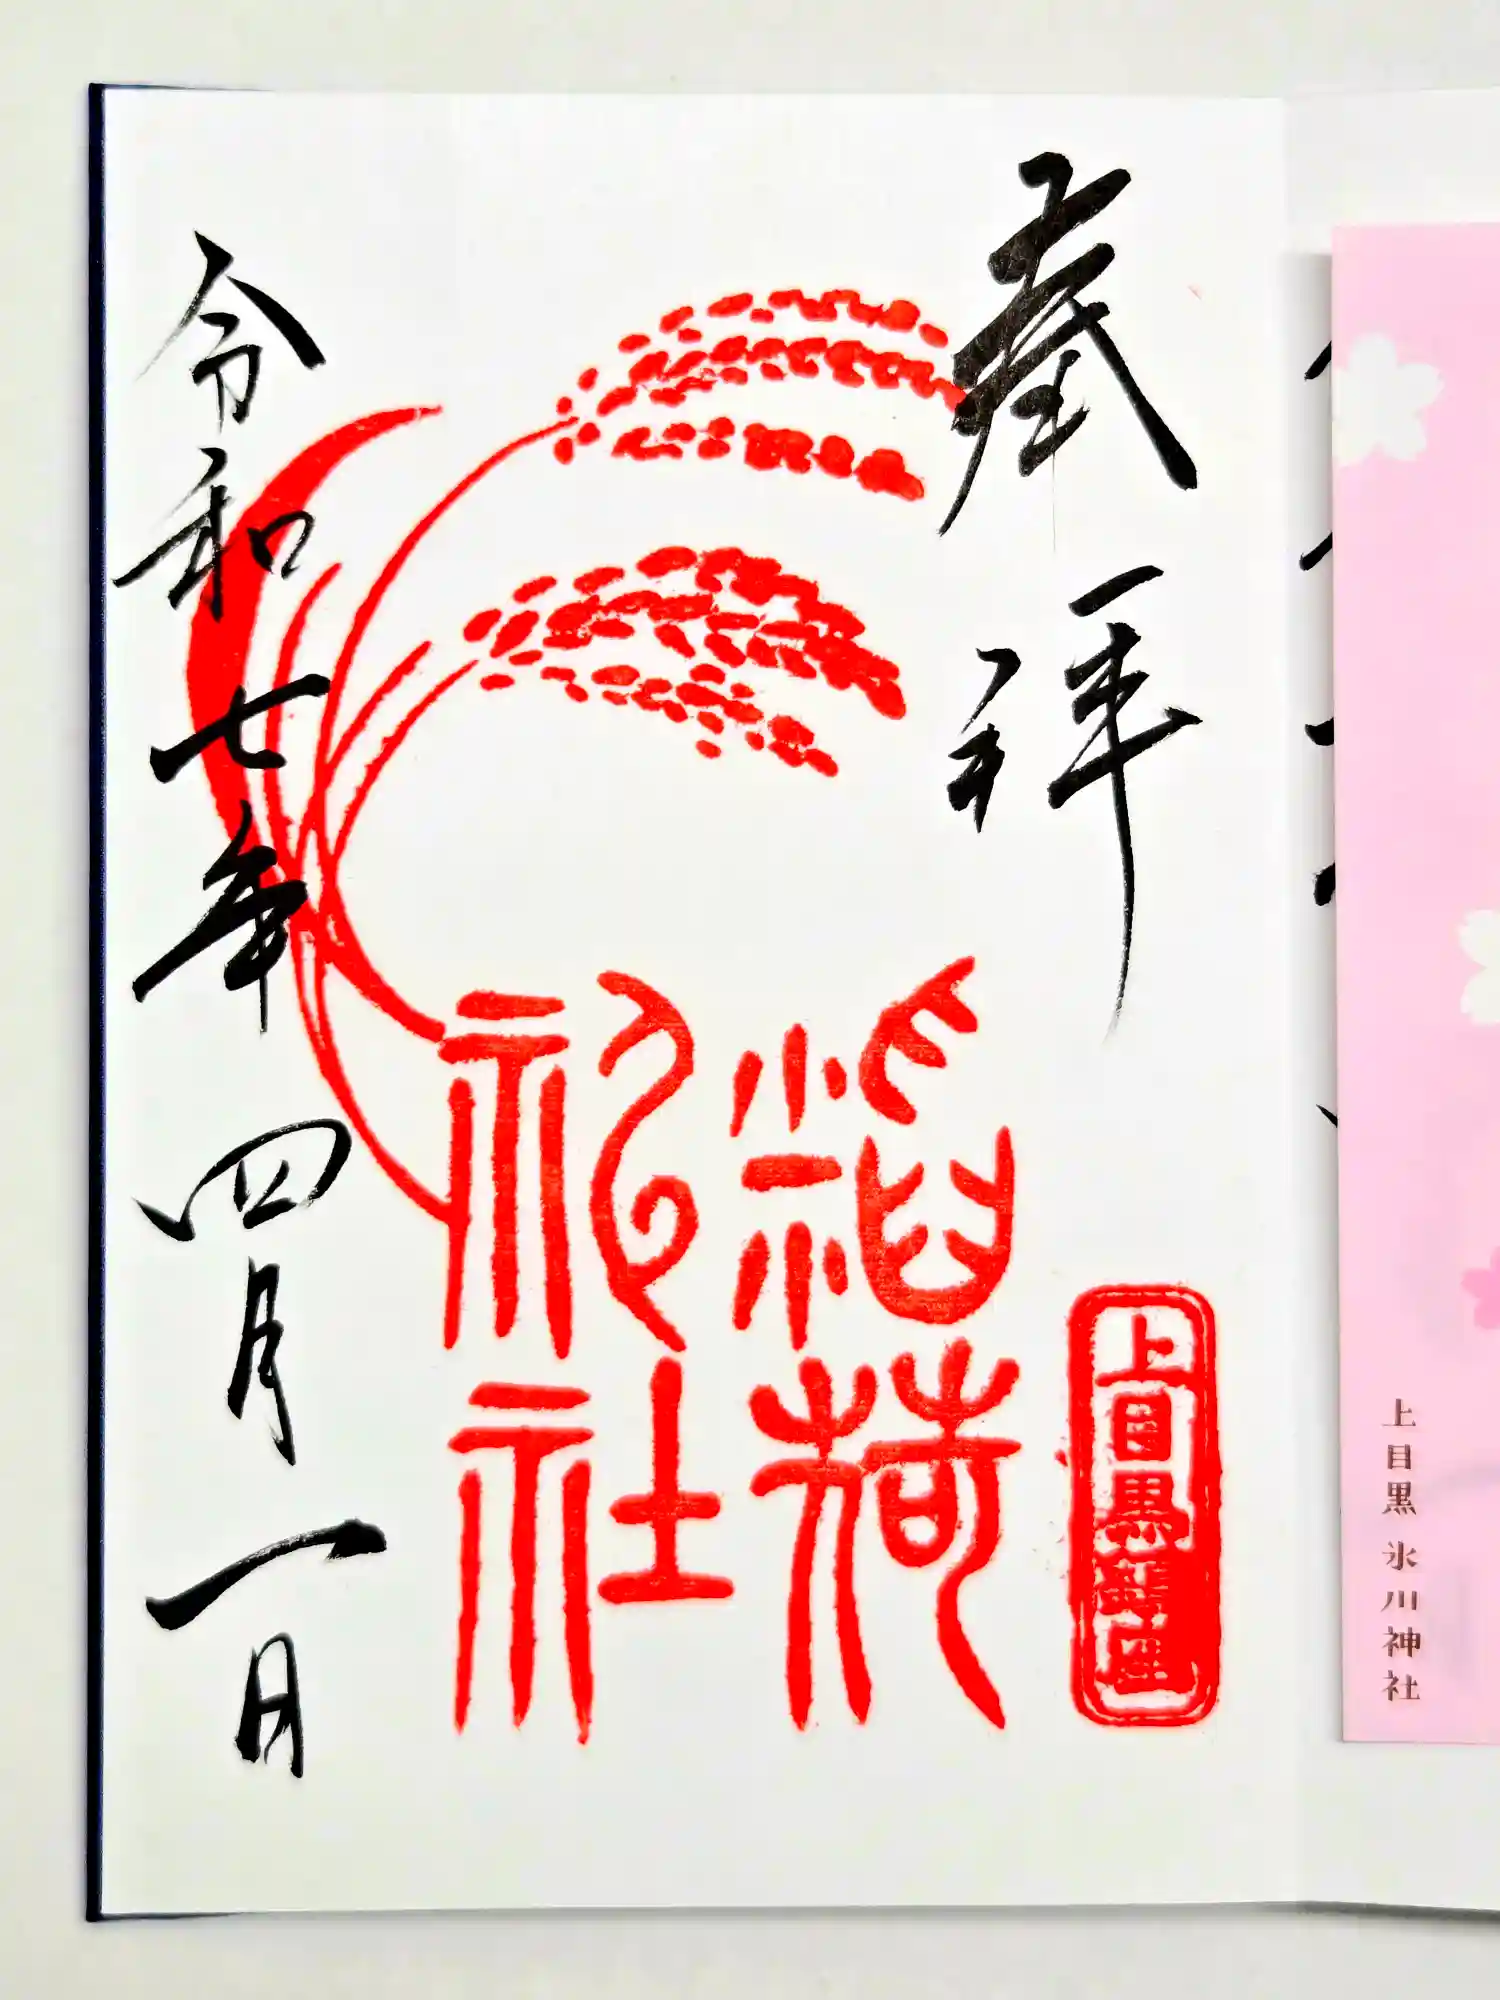 奉拝
上目黒鎮座
稲荷
神社
令和七年四月一日
上目黒 氷川神社